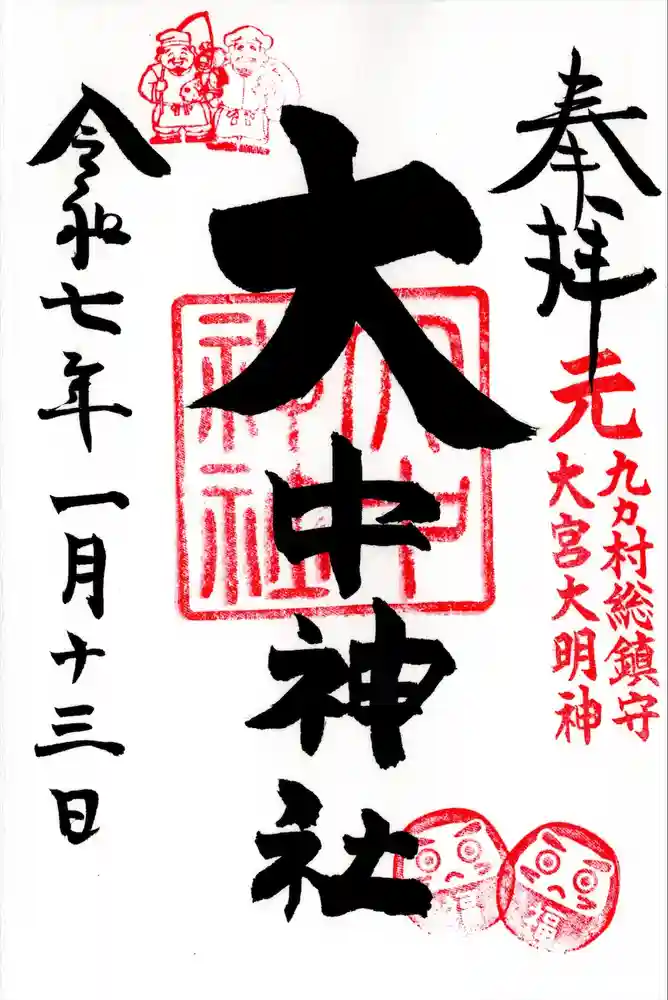 奉拝
元
九ヵ村総鎮守
大宮大明神
大中神社
大中
神社
令和七年一月十三日
福
福